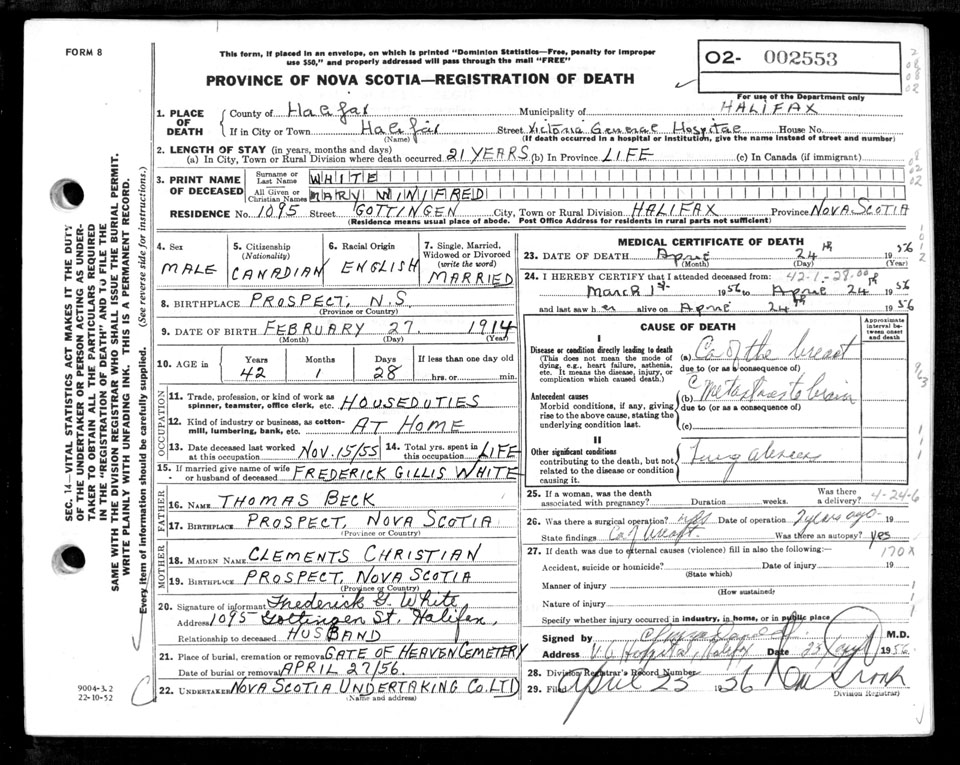 FORM 8
This form, if placed in an envelope, on which is printed "Dominion Statistics—Free, penalty for improper
use $50," and properly addressed will pass through the mail "FREE"
PROVINCE OF NOVA SCOTIA—REGISTRATION OF DEATH
02- 002553
For use of the Department only
1. PLACE OF DEATH
County of Halifax Municipality of HALIFAX
If in City or Town Halifax Street Victoria General Hospital House No.
(Name) (If death occurred in a hospital or institution, give the name instead of street and number)
2. LENGTH OF STAY (in years, months and days)
(a) In City, Town or Rural Division where death occurred 21 YEARS (b) In Province LIFE (c) In Canada (if immigrant)
3. PRINT NAME OF DECEASED
Surname or Last Name WHITE
All Given or Christian Names MARY WINIFRED
RESIDENCE No. 1095 Street GOTTINGEN City, Town or Rural Division HALIFAX Province NOVA SCOTIA
(Residence means usual place of abode. Post Office Address for residents in rural parts not sufficient)
4. Sex MALE
5. Citizenship (Nationality) CANADIAN
6. Racial Origin ENGLISH
7. Single, Married, Widowed or Divorced (write the word) MARRIED
8. BIRTHPLACE PROSPECT, N.S.
(Province or Country)
9. DATE OF BIRTH FEBRUARY 27. 1914
(Month) (Day) (Year)
10. AGE in Years 42 Months 1 Days 28 If less than one day old hrs. or min.
OCCUPATION
11. Trade, profession, or kind of work as spinner, teamster, office clerk, etc. HOUSEDUTIES
12. Kind of industry or business, as cotton-mill, lumbering, bank, etc. AT HOME
13. Date deceased last worked at this occupation NOV. 15/55
14. Total yrs. spent in this occupation LIFE
15. If married give name of wife or husband of deceased FREDERICK GILLIS WHITE
FATHER
16. NAME THOMAS BECK
17. BIRTHPLACE PROSPECT, NOVA SCOTIA
(Province or Country)
MOTHER
18. MAIDEN NAME CLEMENTS CHRISTIAN
19. BIRTHPLACE PROSPECT, NOVA SCOTIA
(Province or Country)
20. Signature of informant Frederick G. White
Address 1095 Gottingen St. Halifax,
Relationship to deceased HUSBAND
21. Place of burial, cremation or removal GATE OF HEAVEN CEMETERY
Date of burial or removal APRIL 27/56.
22. UNDERTAKER NOVA SCOTIA UNDERTAKING CO. LTD
(Name and address)
MEDICAL CERTIFICATE OF DEATH
23. DATE OF DEATH April 24th 1956
(Month) (Day) (Year)
24. I HEREBY CERTIFY that I attended deceased from: 42-1-28.00
March 1st 1956 to April 24th 1956
and last saw her alive on April 24th 1956
CAUSE OF DEATH
Approximate interval between onset and death
I
Disease or condition directly leading to death
(This does not mean the mode of dying, e.g., heart failure, asthenia, etc. It means the disease, injury, or complication which caused death.)
(a) Ca of the breast
due to (or as a consequence of)
Antecedent causes
Morbid conditions, if any, giving rise to the above cause, stating the underlying condition last.
(b) C Metastases to brain
due to (or as a consequence of)
(c)
II
Other significant conditions
contributing to the death, but not related to the disease or condition causing it.
Lung
25. If a woman, was the death associated with pregnancy? Duration weeks. Was there a delivery? 4-24-6
26. Was there a surgical operation? yes Date of operation 2 years ago 19
State findings Ca of breast. Was there an autopsy? yes
27. If death was due to external causes (violence) fill in also the following:— 170X
Accident, suicide or homicide? Date of injury 19
(State which)
Manner of injury
(How sustained)
Nature of injury
Specify whether injury occurred in industry, in home, or in public place
Signed by M.D.
Address V.G. Hospital, Halifax Date 25 1956
28. Division Registrar's Record Number
29. Filed April 25 1956
(Division Registrar)
SEC. 14—VITAL STATISTICS ACT MAKES IT THE DUTY
OF THE UNDERTAKER OR PERSON ACTING AS UNDER-
TAKER TO OBTAIN ALL THE PARTICULARS REQUIRED
IN THE "REGISTRATION OF DEATH" AND TO FILE THE
SAME WITH THE DIVISION REGISTRAR WHO SHALL ISSUE THE BURIAL PERMIT.
WRITE PLAINLY WITH UNFADING INK. THIS IS A PERMANENT RECORD.
Every item of information should be carefully supplied. (See reverse side for instructions.)
9004-3.2
22-10-52